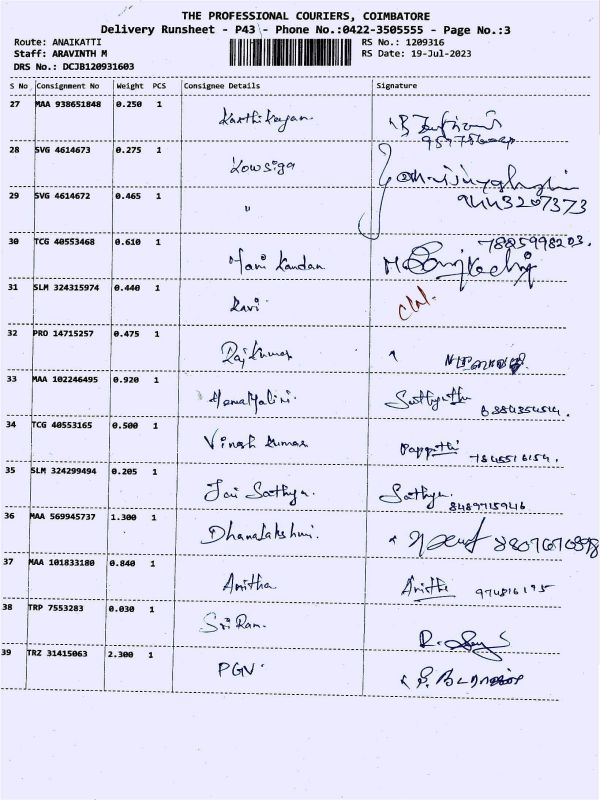 THE PROFESSIONAL COURIERS, COIMBATORE
Delivery Runsheet - P43 - Phone No.:0422-3505555 - Page No.:3
Route: ANAIKATTI RS No.: 1209316
Staff: ARAVINTH M RS Date: 19-Jul-2023
DRS No.: DCJB120931603
S No Consignment No Weight PCS Consignee Details Signature
27 MAA 938651848 0.250 1 Karthikeyan
28 SVG 4614673 0.275 1 Kowsiga
29 SVG 4614672 0.465 1 " 9443207373
30 TCG 40553468 0.610 1 Mani Kandan 7885998203.
31 SLM 324315974 0.440 1 Ravi
32 PRO 14715257 0.475 1 Raj Kumar
33 MAA 102246495 0.920 1 Hemamalini. 6384354514.
34 TCG 40553165 0.500 1 Vinoth Kumar Pappathi 7845516154.
35 SLM 324299494 0.205 1 Jai Sathya. Sathya. 8489715946
36 MAA 569945737 1.300 1 Dhanalakshmi.
37 MAA 101833180 0.840 1 Anitha
38 TRP 7553283 0.030 1 Sri Ram.
39 TRZ 31415063 2.300 1 PGV.